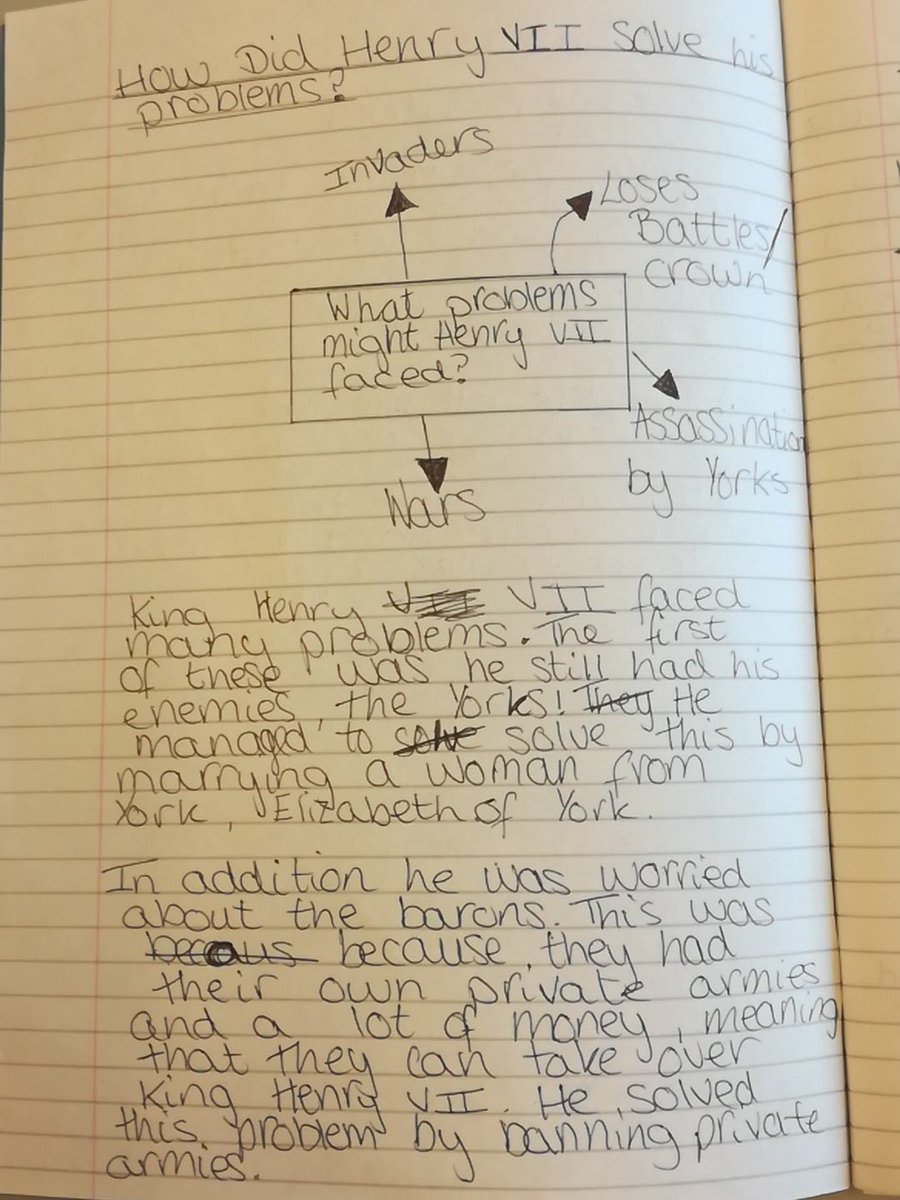 How Did Henry VII Solve his
problems?
Invaders
Loses
Battles/
crown
What problems
might Henry VII
faced?
Assassination
by Yorks
Wars
King Henry VII VII faced
many problems. The first
of these was he still had his
enemies, the Yorks! They He
managed to solve solve this by
marrying a woman from
York, Elizabeth of York.
In addition he was worried
about the barons. This was
becaus because, they had
their own private armies
and a lot of money, meaning
that they can take over
King Henry VII. He solved
this problem by banning private
armies.